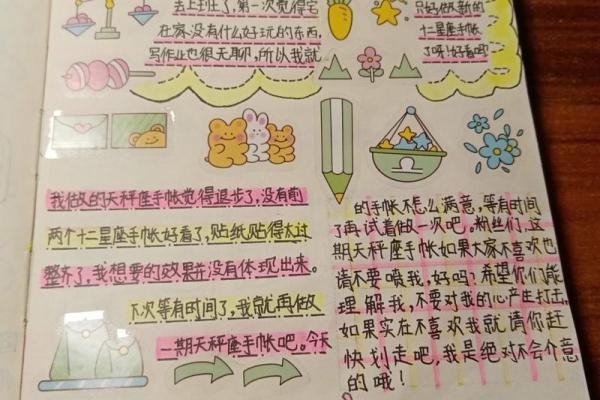 去上班了,第一次觉得宅
在家没有什么好玩的东西,
写作业也很无聊,所以我就
只好做新的
十二星座手帐
了呀!好看吗
我做的天秤座手帐觉得退步了,没有前
两个十二星座手帐好看了,贴纸贴得太过
整齐了,我想要的效果并没有体现出来。
下次等有时间了,我就再做
一期天秤座手帐吧。今天
的手帐不怎么满意,等有时间
了再试着做一次吧。粉丝们,这
期天秤座手帐如果大家不喜欢也
请不要喷我,好吗?希望你们能
理解我,不要对我的心产生打击,
如果实在不喜欢我就请你赶
快划走吧,我是绝对不会介意
的哦!